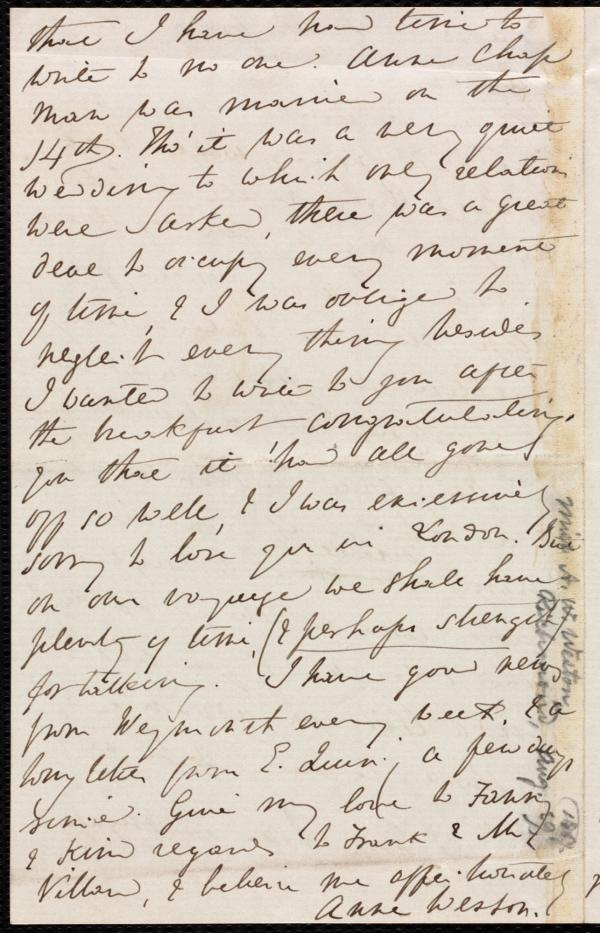 that I have had time to
write to no one. Anne Chap
man was married on the
14th. Tho' it was a very quiet
wedding to which only relations
were asked, there was a great
deal to occupy every moment
of time, & I was obliged to
neglect every thing besides.
I wanted to write to you after
the breakfast congratulating
you that it had all gone
off so well, & I was excessively
sorry to lose you in London. But
on our voyage we shall have
plenty of time, (& perhaps strength
for talking. I have good news
from Weymouth every week, & a
long letter from E. a few days
since. Give my love to Fanny
& kind regards to Frank & Mr
Villard, & believe me affectionately
Anne Weston.
Miss A. W. Weston